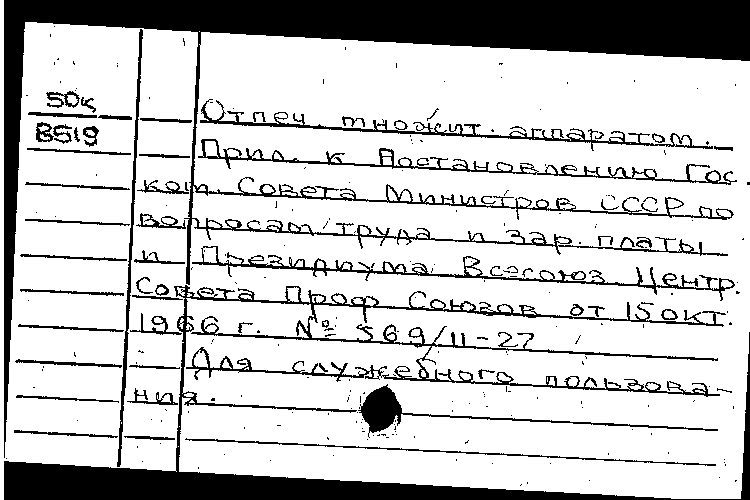 50к
В519
Отпеч. множит. аппаратом.
Прил. к Постановлению Гос.
ком. Совета Министров СССР по
вопросам труда и зар. платы
и Президиума Всесоюз. Центр.
Совета Проф Союзов от 15 окт.
1966 г. № 569/II-27
Для служебного пользова-
ния.